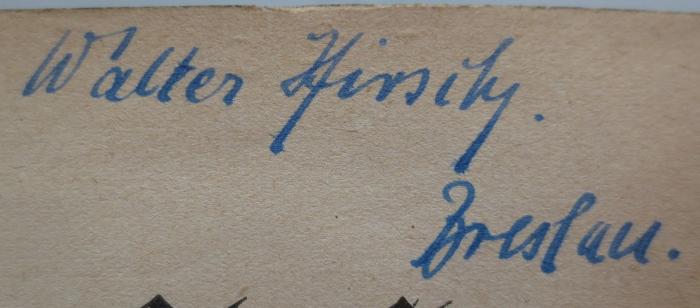 Walter Hirsch.
Breslau.